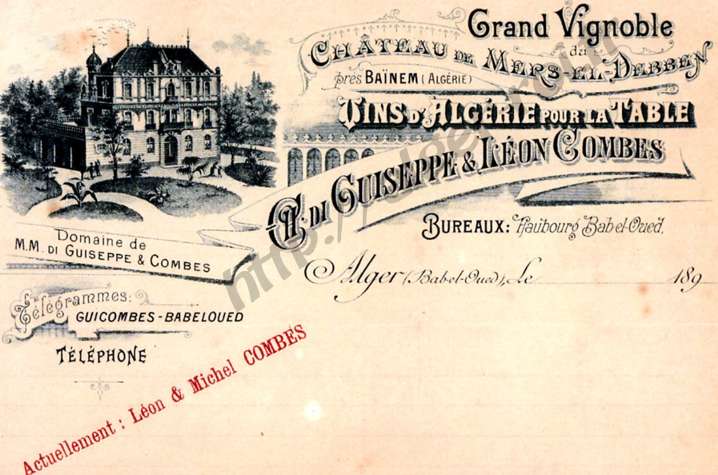 Grand Vignoble
du
CHÂTEAU DE MERS-EL-DEBBEN
près BAÏNEM (ALGÉRIE)
VINS D'ALGÉRIE POUR LA TABLE
CH. DI GUISEPPE & LÉON COMBES
BUREAUX: Faubourg Bab-el-Oued.
Domaine de
M.M. DI GUISEPPE & COMBES
Alger (Bab-el-Oued), Le 189
Télégrammes:
GUICOMBES-BABELOUED
TÉLÉPHONE
Actuellement : Léon & Michel COMBES